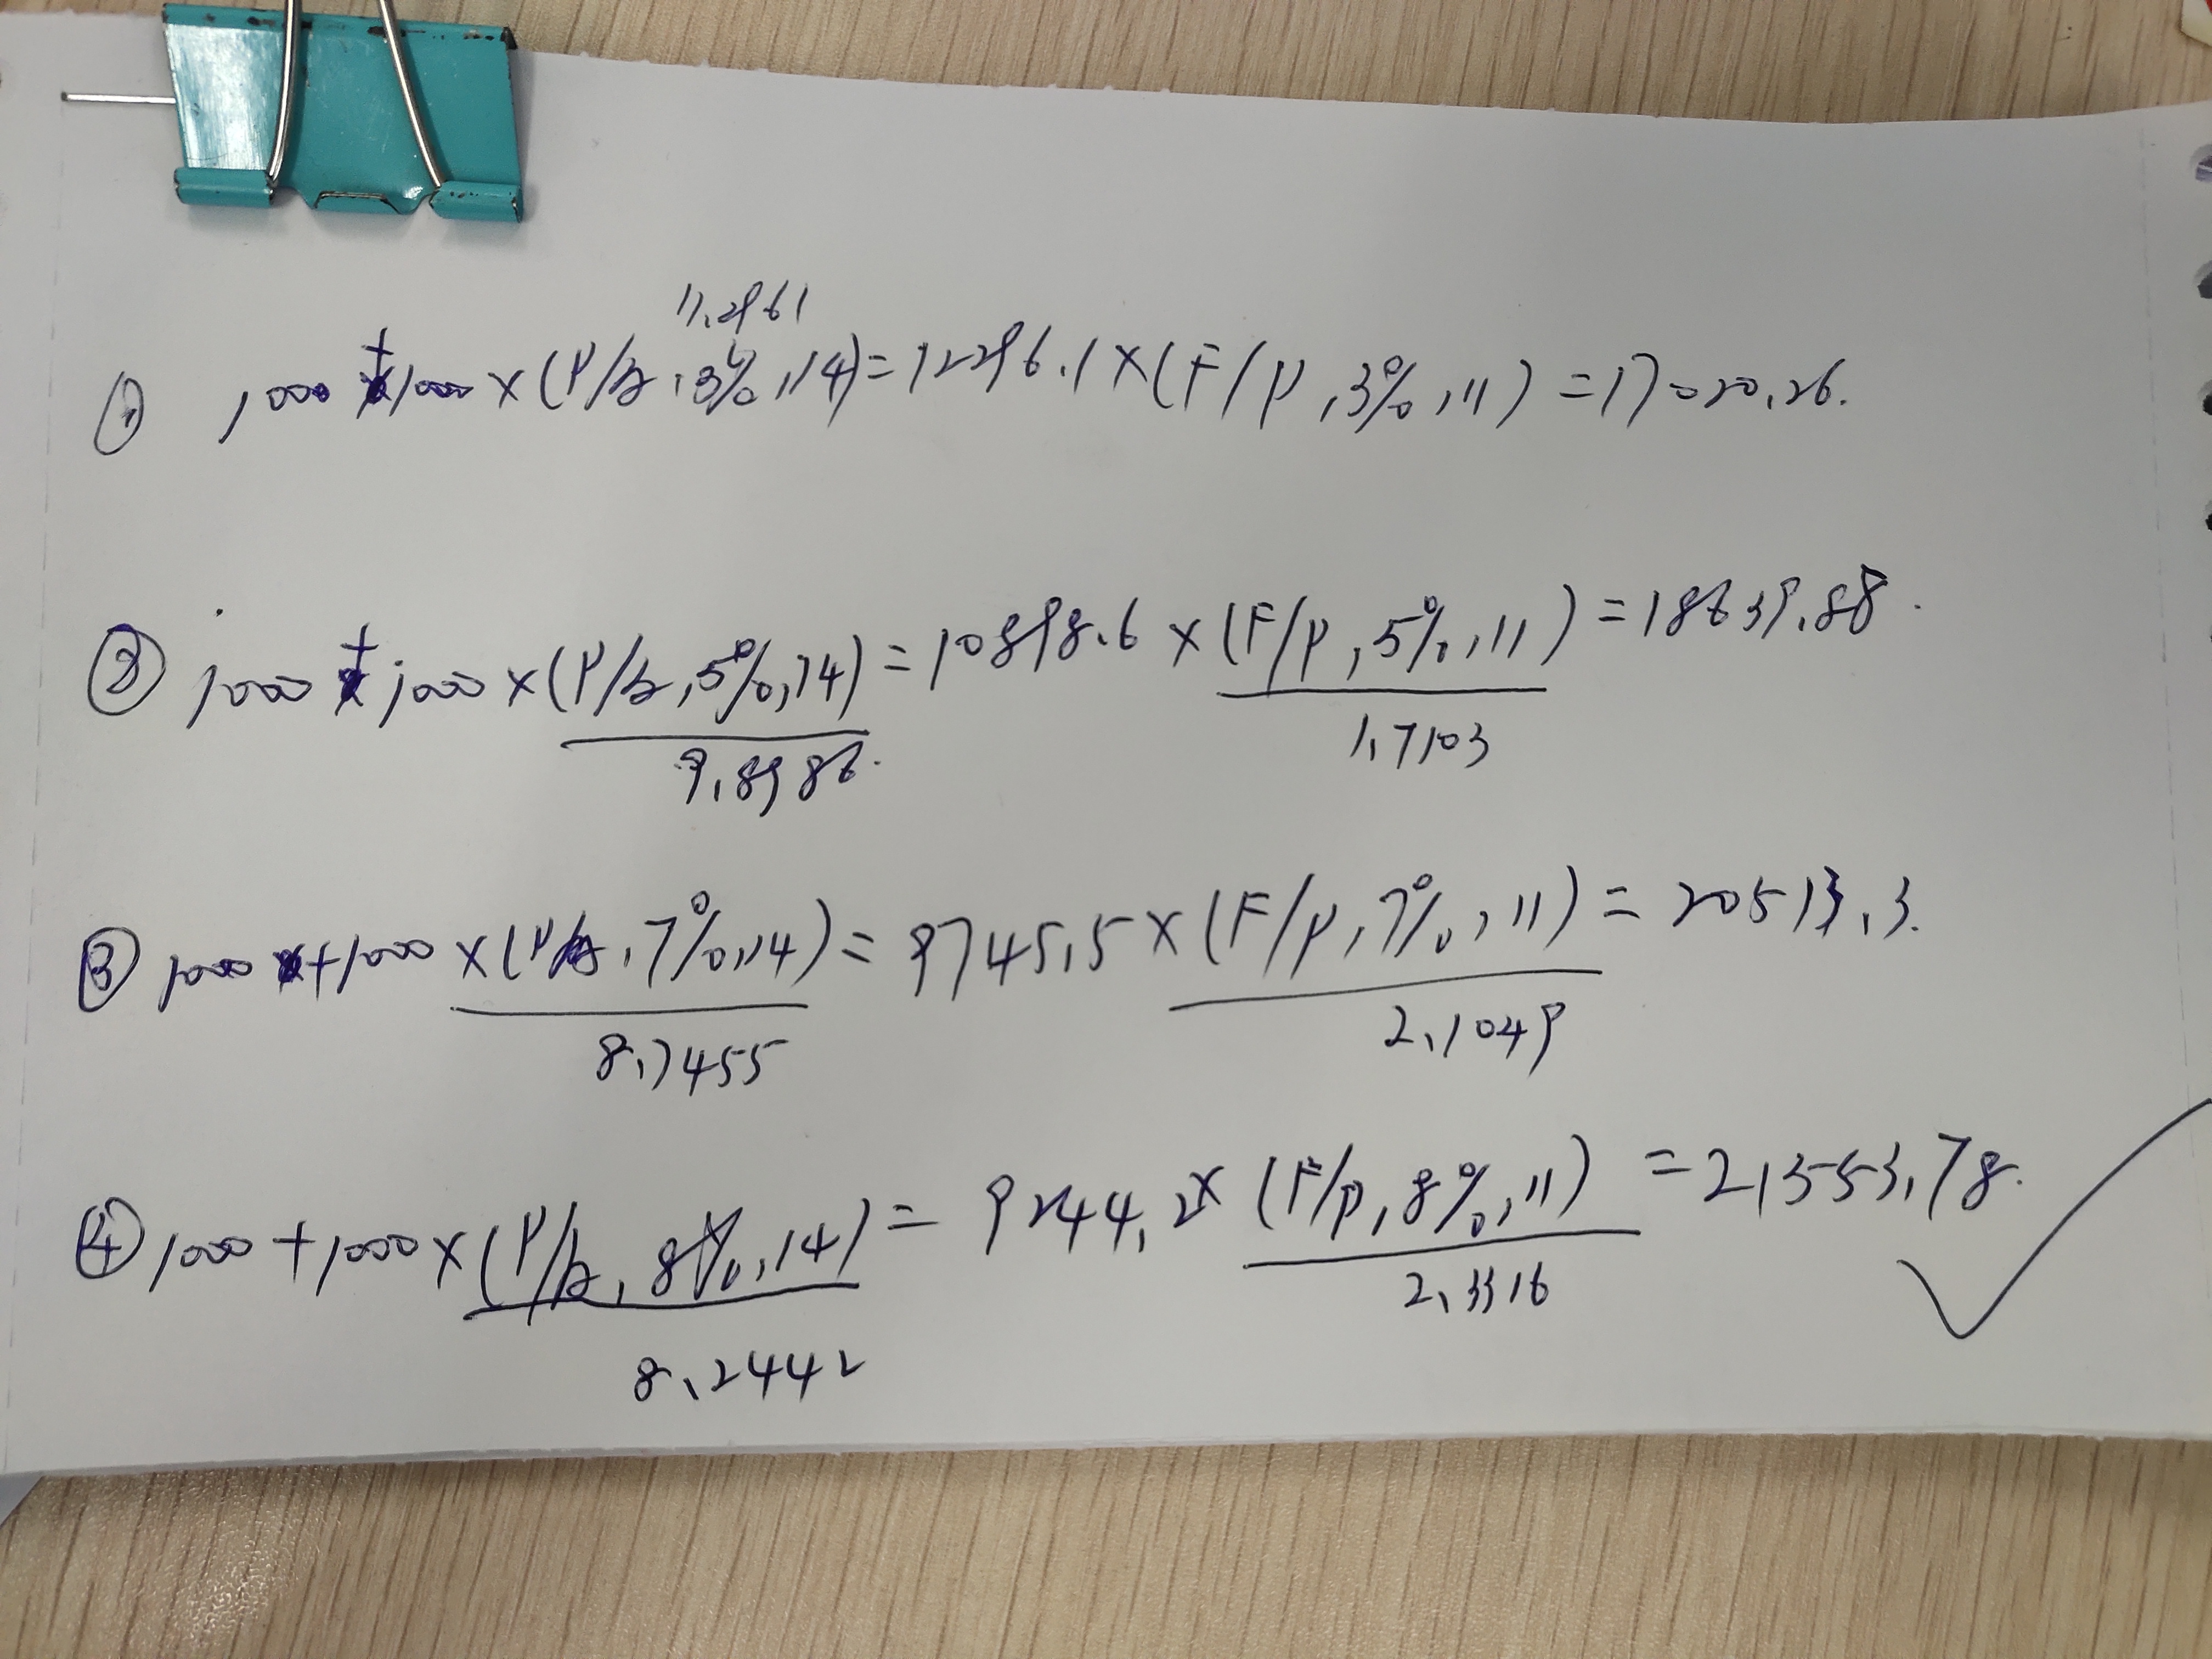 11.2961
① 1000+1000×(P/A,3%,14)=12296.1×(F/P,3%,11)=17020.26.
② 1000+1000×(P/A,5%,14)=10898.6×(F/P,5%,11)=18639.88.
9.8986 1.7103
③ 1000+1000×(P/A,7%,14)=9745.5×(F/P,7%,11)=20513.3.
8.7455 2.1049
④ 1000+1000×(P/A,8%,14)=9244.2×(F/P,8%,11)=21553.78.
8.2442 2.3316